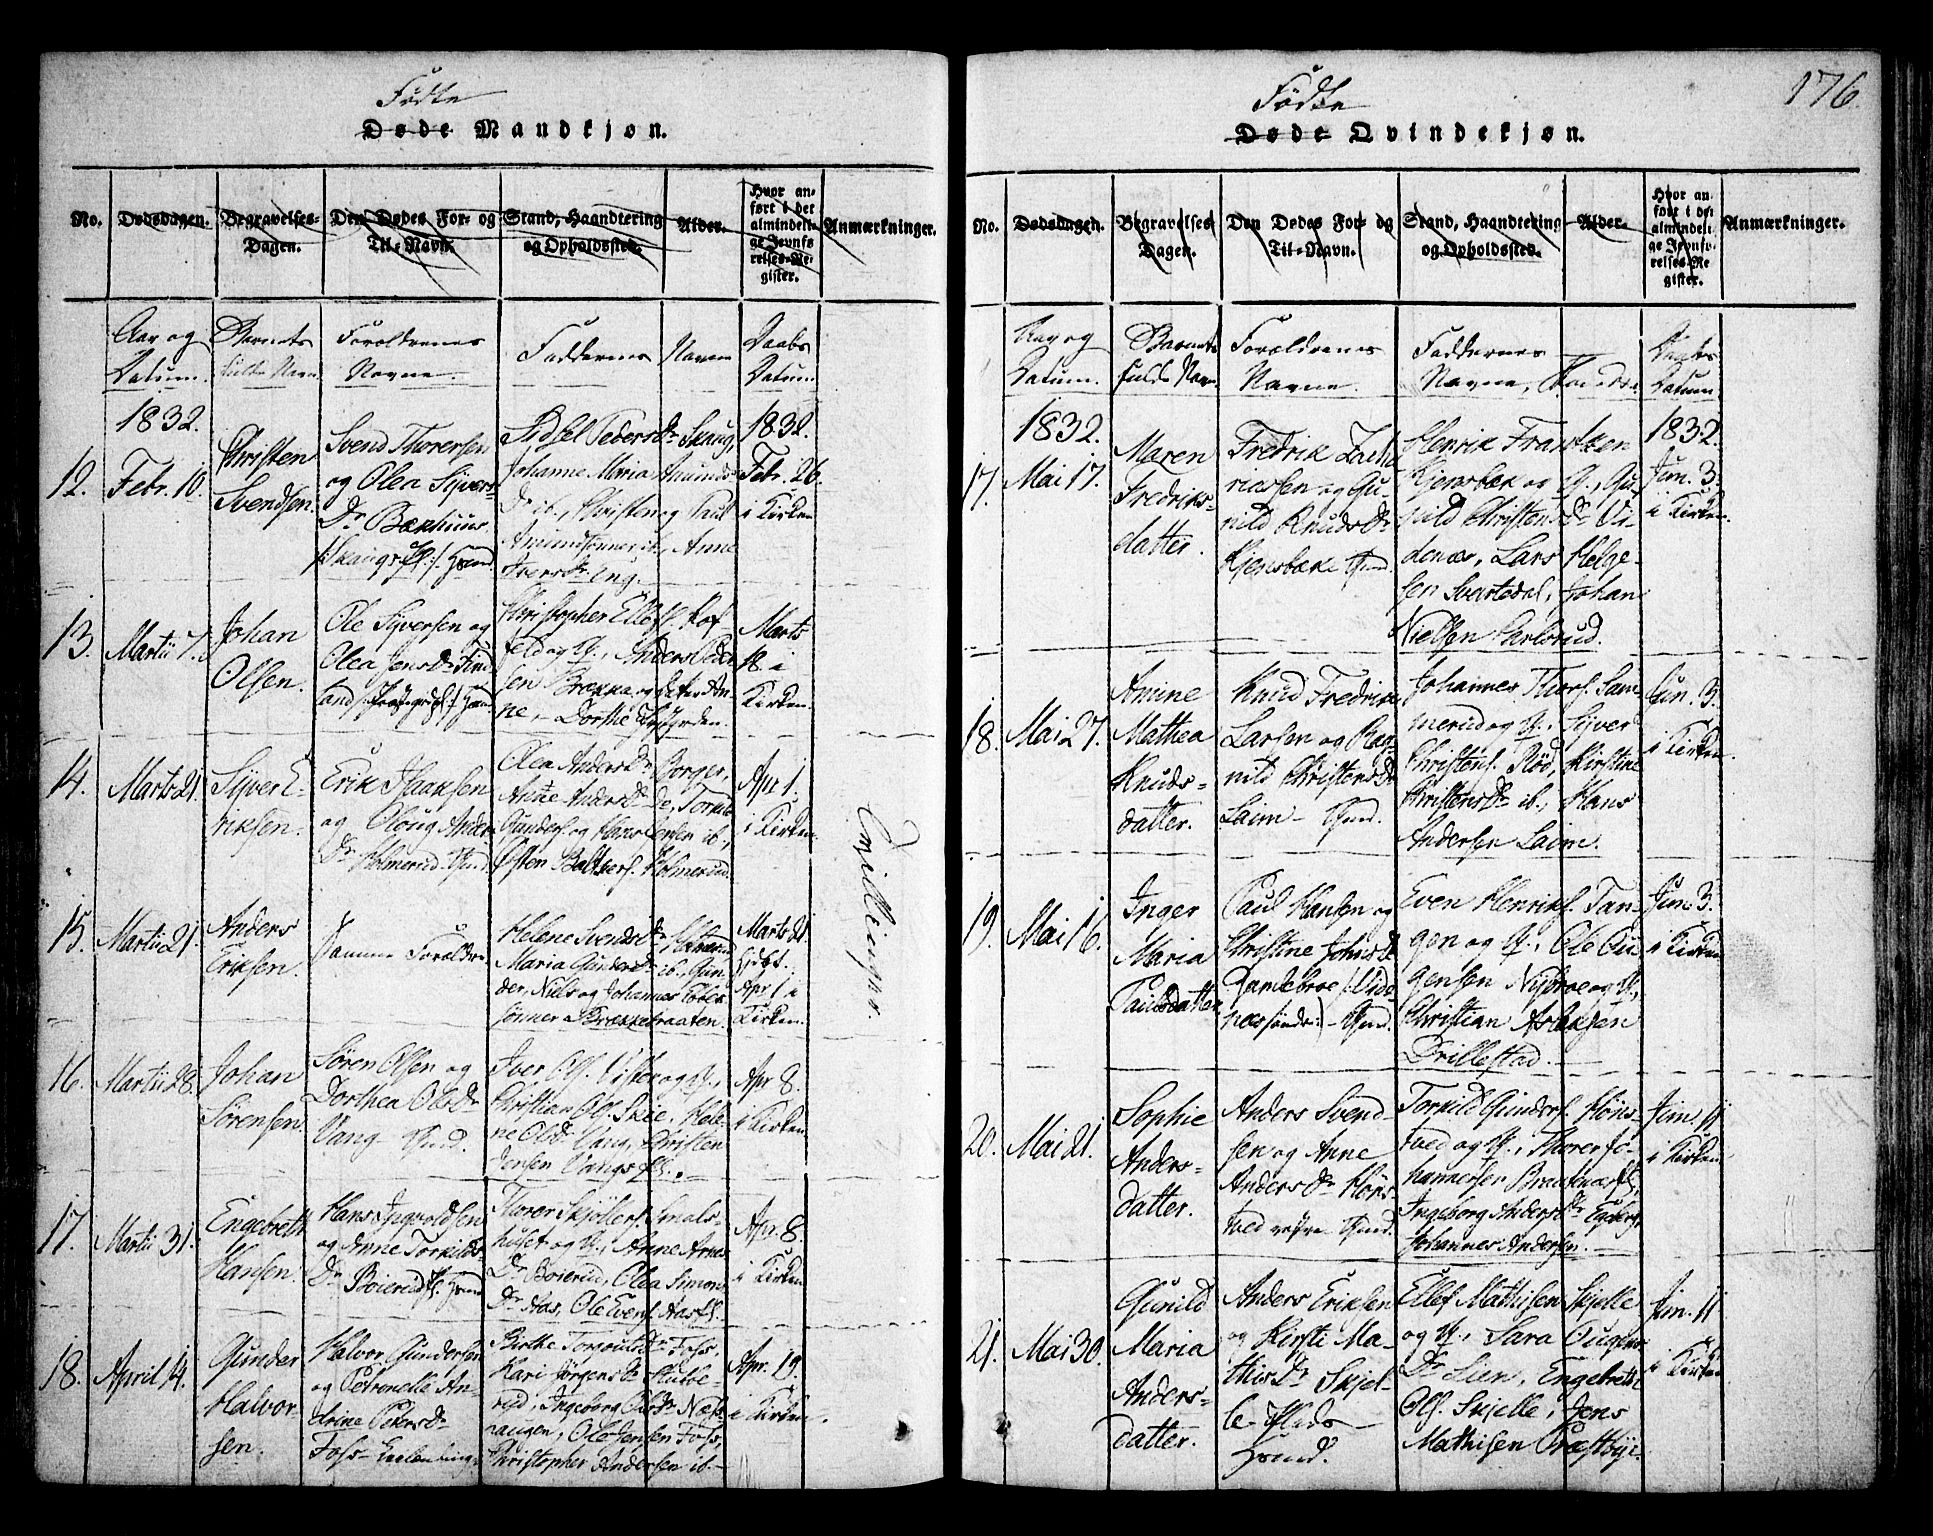 Födte
Døde Mandkjøn.
No.
Dødsdagen.
Begravelses-
Dagen.
Den Dødes For- og
Til-Navn.
Stand, Haandtering
og Opholdssted.
Alder.
Hvor an-
ført i det
almindeli-
ge Jevnfø
relses-Re-
gister.
Anmærkninger.
Aar og
Datum.
Barnets
fulde Navn
Forældrenes
Navne.
Faddernes Navne
Daabs
Datum.
1832.
12.
Febr. 10.
Christen
Svendsen.
Svend Thorersen
og Olea Sijvers
Dr Bækhuus
Sidsel Peders Dr Skaug,
Johanne Maria Amunds
Dr ib., Christen og Paul
Amundsønner ib., Anne
Ivers Dr Eng.
1832.
Febr. 26.
i Kirken
13.
Martii 7.
Johan
Olsen.
Ole Sijversen og
Olea Jens Dr
Christopher
feld og H., Anders Peder
sen Brekke og
ne, Dorthe
Marts
18 i
Kirken.
14.
Marts 21.
Sijver E-
riksen.
Erik Isaaksen
og Oloug Anders
Dr Holmerud Gaard.
Olea Anders Dr Borger,
Anne Anders Dr
Gunders. og Hans Jensen ib.,
Østen Baltzers. Holmerud.
Apr. 1.
i Kirken.
Tvillinger
15.
Martii 21.
Anders
Eriksen.
Samme Forældre.
Helene Svends Dr Holmerud
Maria Gunders Dr ib., Gun-
der, Niels og Johannes
sønner Brækkebraaten.
Marts 21
hjdbt.
Apr. 1 i
Kirken.
16.
Martii 28.
Johan
Sörensen.
Sören Olsen og
Dorthea Ols Dr
Vang
Iver Ols. Vister og H.,
Christian Ols. Skie, Hele-
ne Ols Dr Vang, Christen
Jensen Vangs
Apr. 8.
i Kirken
17.
Martii 31.
Engebreth
Hansen.
Hans Ingvoldsen
og Anne Torkilds
Dr Boierud
Thorer Skjöllers. Smals-
huset og H., Anne Arnes
Dr Boierud, Olea Simons
Dr Aas, Ole Evens. Aas
Apr. 8.
i Kirken
18.
April 14.
Gunder
Halvor-
sen.
Halvor Gundersen
og Petronelle An-
drine Peders Dr
Foss
Birthe Torgvuns Dr Foss,
Kari Jørgens Dr Slubbe-
rud, Ingeborg Ols Dr Næs-
haugen, Ole Jensen Foss,
Christopher Andersen ib.
Apr. 19.
i Kirken.
176
Födte
Døde Qvindekjøn.
No.
Dødsdagen.
Begravelses
Dagen.
Den Dødes For- og
Til-Navn.
Stand, Haandtering
og Opholdssted.
Alder.
Hvor an-
ført i det
almindeli-
ge Jevnfø-
relses-Re
gister.
Anmærkninger.
Aar og
Datum.
Barnets
fulde Navn.
Forældrenes
Navne.
Faddernes
Navne,
Daabs
Datum
1832.
17.
Mai 17.
Maren
Fredriks-
datter.
Fredrik Zacha
riassen og Gu-
nild Knuds Dr
Kjensbæk
Henrik Frantzen
Kjensbæk og H., Gu-
nild Christens Dr Vi-
denæs, Lars Helge-
sen Svartedal, Johan
Nielsen Carlsrud.
1832.
Jun. 3.
i Kirken.
18.
Mai 27.
Amine
Mathea
Knuds-
datter.
Knud Fredrik
Larsen og Rag-
nild Christens Dr
Laim
Johannes Thors. Sam-
merud og H., Sijver
Christens. Röd, Kirstine
Christens Dr ib., Hans
Andersen Laim.
Jun. 3.
i Kirken
19.
Mai 16.
Inger
Maria
Paulsdatter
Paul Hansen og
Christine Johns Dr
Gamlebroe
Even Henriks. Tan-
gen og H., Ole Au-
gensen Nybroe og H.,
Christian Aslaksen
Drillestad.
Jun. 3.
i Kirken
20.
Mai 21.
Sophie
Anders-
datter.
Anders Svend-
sen og Anne
Anders Dr Höns-
tved
Torkild Gunders. Höns-
tved og H., Thorer Jo-
hannessen
Ingeborg Anders Dr
Johannes Andersen.
Jun. 11
i Kirken
21.
Mai 30.
Gunild
Maria
Anders-
datter.
Anders Eriksen
og Kirsti Ma-
this Dr Skjel-
le
Ellef Mathisen Skjelle
og H., Sara Ougens
Dr Lien, Engebreth
Ols. Skjelle, Jens
Mathisen Præstbye.
Jun. 11
i Kirken